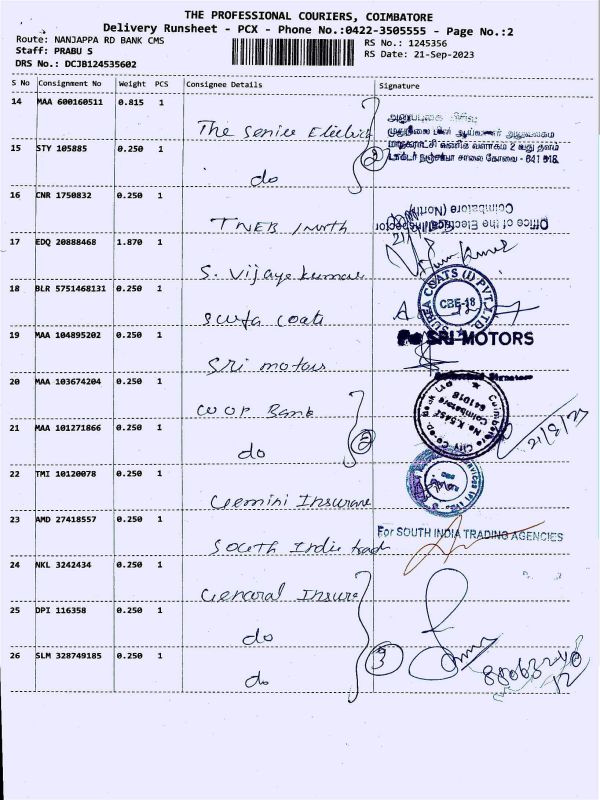 THE PROFESSIONAL COURIERS, COIMBATORE
Delivery Runsheet - PCX - Phone No.:0422-3505555 - Page No.:2
Route: NANJAPPA RD BANK CMS
RS No.: 1245356
Staff: PRABU S
RS Date: 21-Sep-2023
DRS No.: DCJB124535602
S No Consignment No Weight PCS Consignee Details Signature
14 MAA 600160511 0.815 1 The Senice Electrical
முதுநிலை மின் ஆய்வாளர் அலுவலகம்
மாநகராட்சி வணிக வளாகம் 2 வது தளம்
டாக்டர் நஞ்சப்பா சாலை கோவை - 641 018.
15 STY 105885 0.250 1 do 2
16 CNR 1750832 0.250 1 TNEB North
Office of the Electrical Inspector
Coimbatore (North)
17 EDQ 20888468 1.870 1 S. Vijayakumar
18 BLR 5751468131 0.250 1 surfa coats
SURFA COATS (I) PVT. LTD. CBE-18
19 MAA 104895202 0.250 1 Sri motors
For SRI MOTORS
Authorised Signature
20 MAA 103674204 0.250 1 CO OP Bank
Coimbatore City Co-op. Bank Ltd No K.5457 Coimbatore 641018
21 MAA 101271866 0.250 1 do 2
21/8/23
22 TMI 10120078 0.250 1 Gemini Insurance
23 AMD 27418557 0.250 1 South Indie trad
For SOUTH INDIA TRADING AGENCIES
24 NKL 3242434 0.250 1 General Insure
25 DPI 116358 0.250 1 do
26 SLM 328749185 0.250 1 do 3